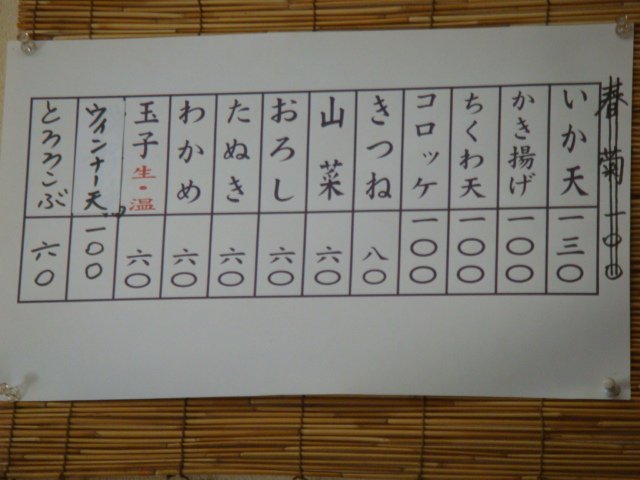 春菊一〇〇
いか天一三〇
かき揚げ一〇〇
ちくわ天一〇〇
コロッケ一〇〇
きつね八〇
山菜六〇
おろし六〇
たぬき六〇
わかめ六〇
玉子生・温六〇
ウィンナー天一〇〇
とろろこぶ六〇